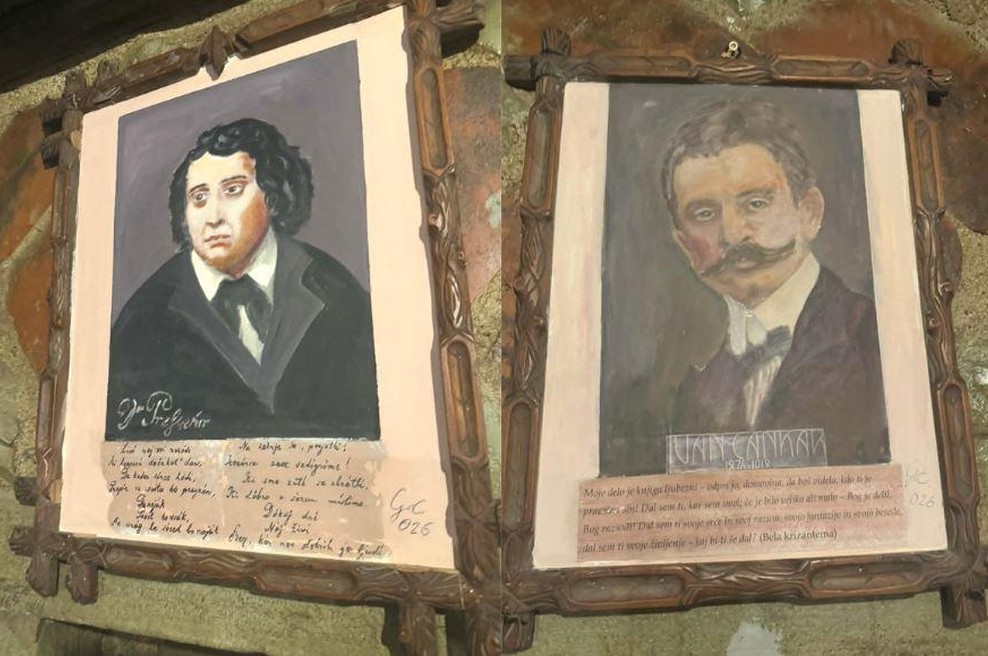 Dr Preshérin
Živé naj vsi naródi
ki hrepené dočakat' dan,
Da koder sonce hodi,
Prepir iz svéta bo pregnan,
rojak
Prost bo vsak,
Ne vrag, le sosed bo mejak
Na zadnje še, prijatlji!
Kozarce zase vzdignimo!
Ki smo zato se zbratli,
Ki dobro v srcu mislimo.
Dókaj dni
Naj živi
kar nas dobrih je ljudi
GC
026
IVAN CANKAR
1876-1918
Moje delo je knjiga ljubezni – odpri jo, domovina, da boš videla, kdo ti je
pravičen sin! Dal sem ti, kar sem imel; če je bilo veliko ali malo – Bog je delil,
Bog razsodi! Dal sem ti svoje srce in svoj razum, svojo fantazijo in svojo besedo,
dal sem ti svoje življenje – kaj bi ti še dal? (Bela krizantema)
GC
026